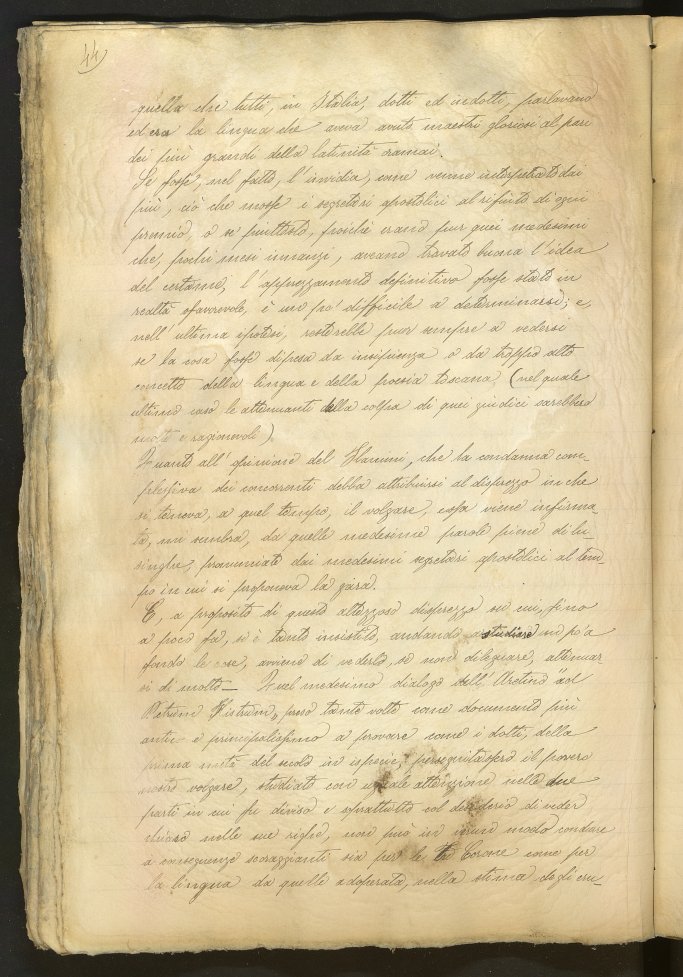 44
quella che tutti, in Italia, dotti ed indotti, parlavano
ed era la lingua che aveva avuto maestri gloriosi al pari
dei più grandi della latinità oramai.
Se fosse, nel fatto, l'invidia, come venne interpretato dai
più, ciò che mosse i segretari apostolici al rifiuto di ogni
premio, o se piuttosto, poiché erano pur quei medesimi
che, pochi mesi innanzi, aveano trovato buona l'idea
del certame, l'apprezzamento definitivo fosse stato in
realtà sfavorevole, è un po' difficile a determinarsi; e,
nell'ultima ipotesi, resterebbe pur sempre a vedersi
se la cosa fosse dipesa da insipienza o da troppo alto
concetto della lingua e della poesia toscana (nel quale
ultimo caso le attenuanti della colpa di quei giudici sarebbero
molte e ragionevoli)
Quanto all'opinione del Flamini, che la condanna com-
plessiva dei concorrenti debba attribuirsi al disprezzo in che
si teneva, a quel tempo, il volgare, essa viene infirma-
ta, mi sembra, da quelle medesime parole piene di lu-
singhe, pronunciate dai medesimi segretari apostolici al tem-
po in cui si proponeva la gara.
E, a proposito di questo altezzoso disprezzo su cui, fino
a poco fa, si è tanto insistito, andando a studiare un po' a
fondo le cose, avviene di vederlo, se non dileguare, attenuar
si di molto – Quel medesimo dialogo dell'Aretino "ad
Petrum Histrum", preso tante volte come documento più
antico e principalissimo a provare come i dotti, della
prima metà del secolo in ispecie, perseguitassero il povero
nostro volgare, studiato con uguale attenzione nelle due
parti in cui fu diviso e soprattutto col desiderio di veder
chiaro nelle sue righe, non può in niun modo condurre
a conseguenze scoraggianti sia per le Corone come per
la lingua da quelle adoperata, nella stima degli eru-